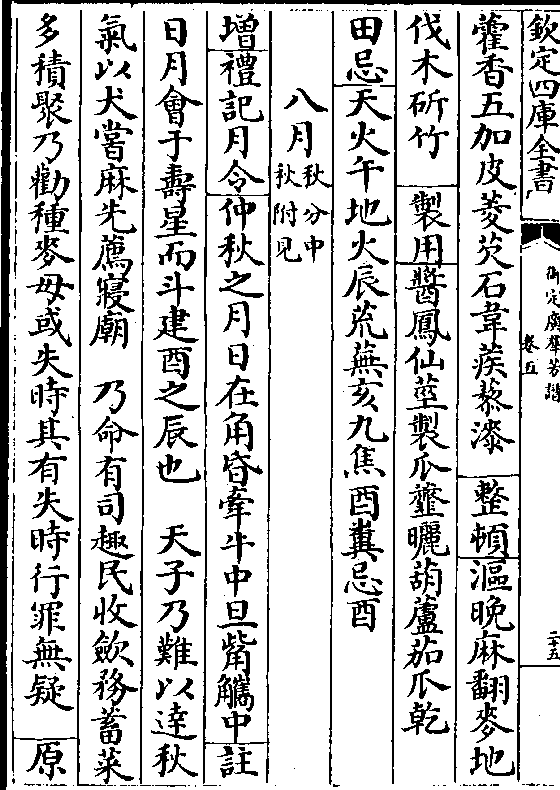 欽定四庫全書
御定廣羣芳譜
卷五
二十五
藿香五加皮菱芡石韋蒺藜漆 整頓漚晩麻翻麥地
伐木斫竹 製用醬鳳仙莖製瓜虀曬葫蘆茄瓜乾
田忌天火午地火辰荒蕪亥九焦酉糞忌酉
八月秋分中秋附見
增禮記月令仲秋之月日在角昏牽牛中旦觜觿中註
日月會于壽星而斗建酉之辰也 天子乃難以達秋
氣以犬嘗麻先薦寢廟 乃命有司趣民收斂務蓄菜
多積聚乃勸種麥毋或失時其有失時行罪無疑 原